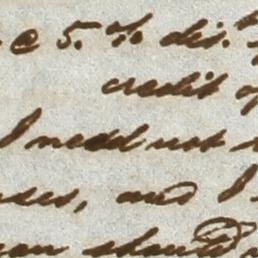 @ 5. % dis.
credit
I need not
and I
should